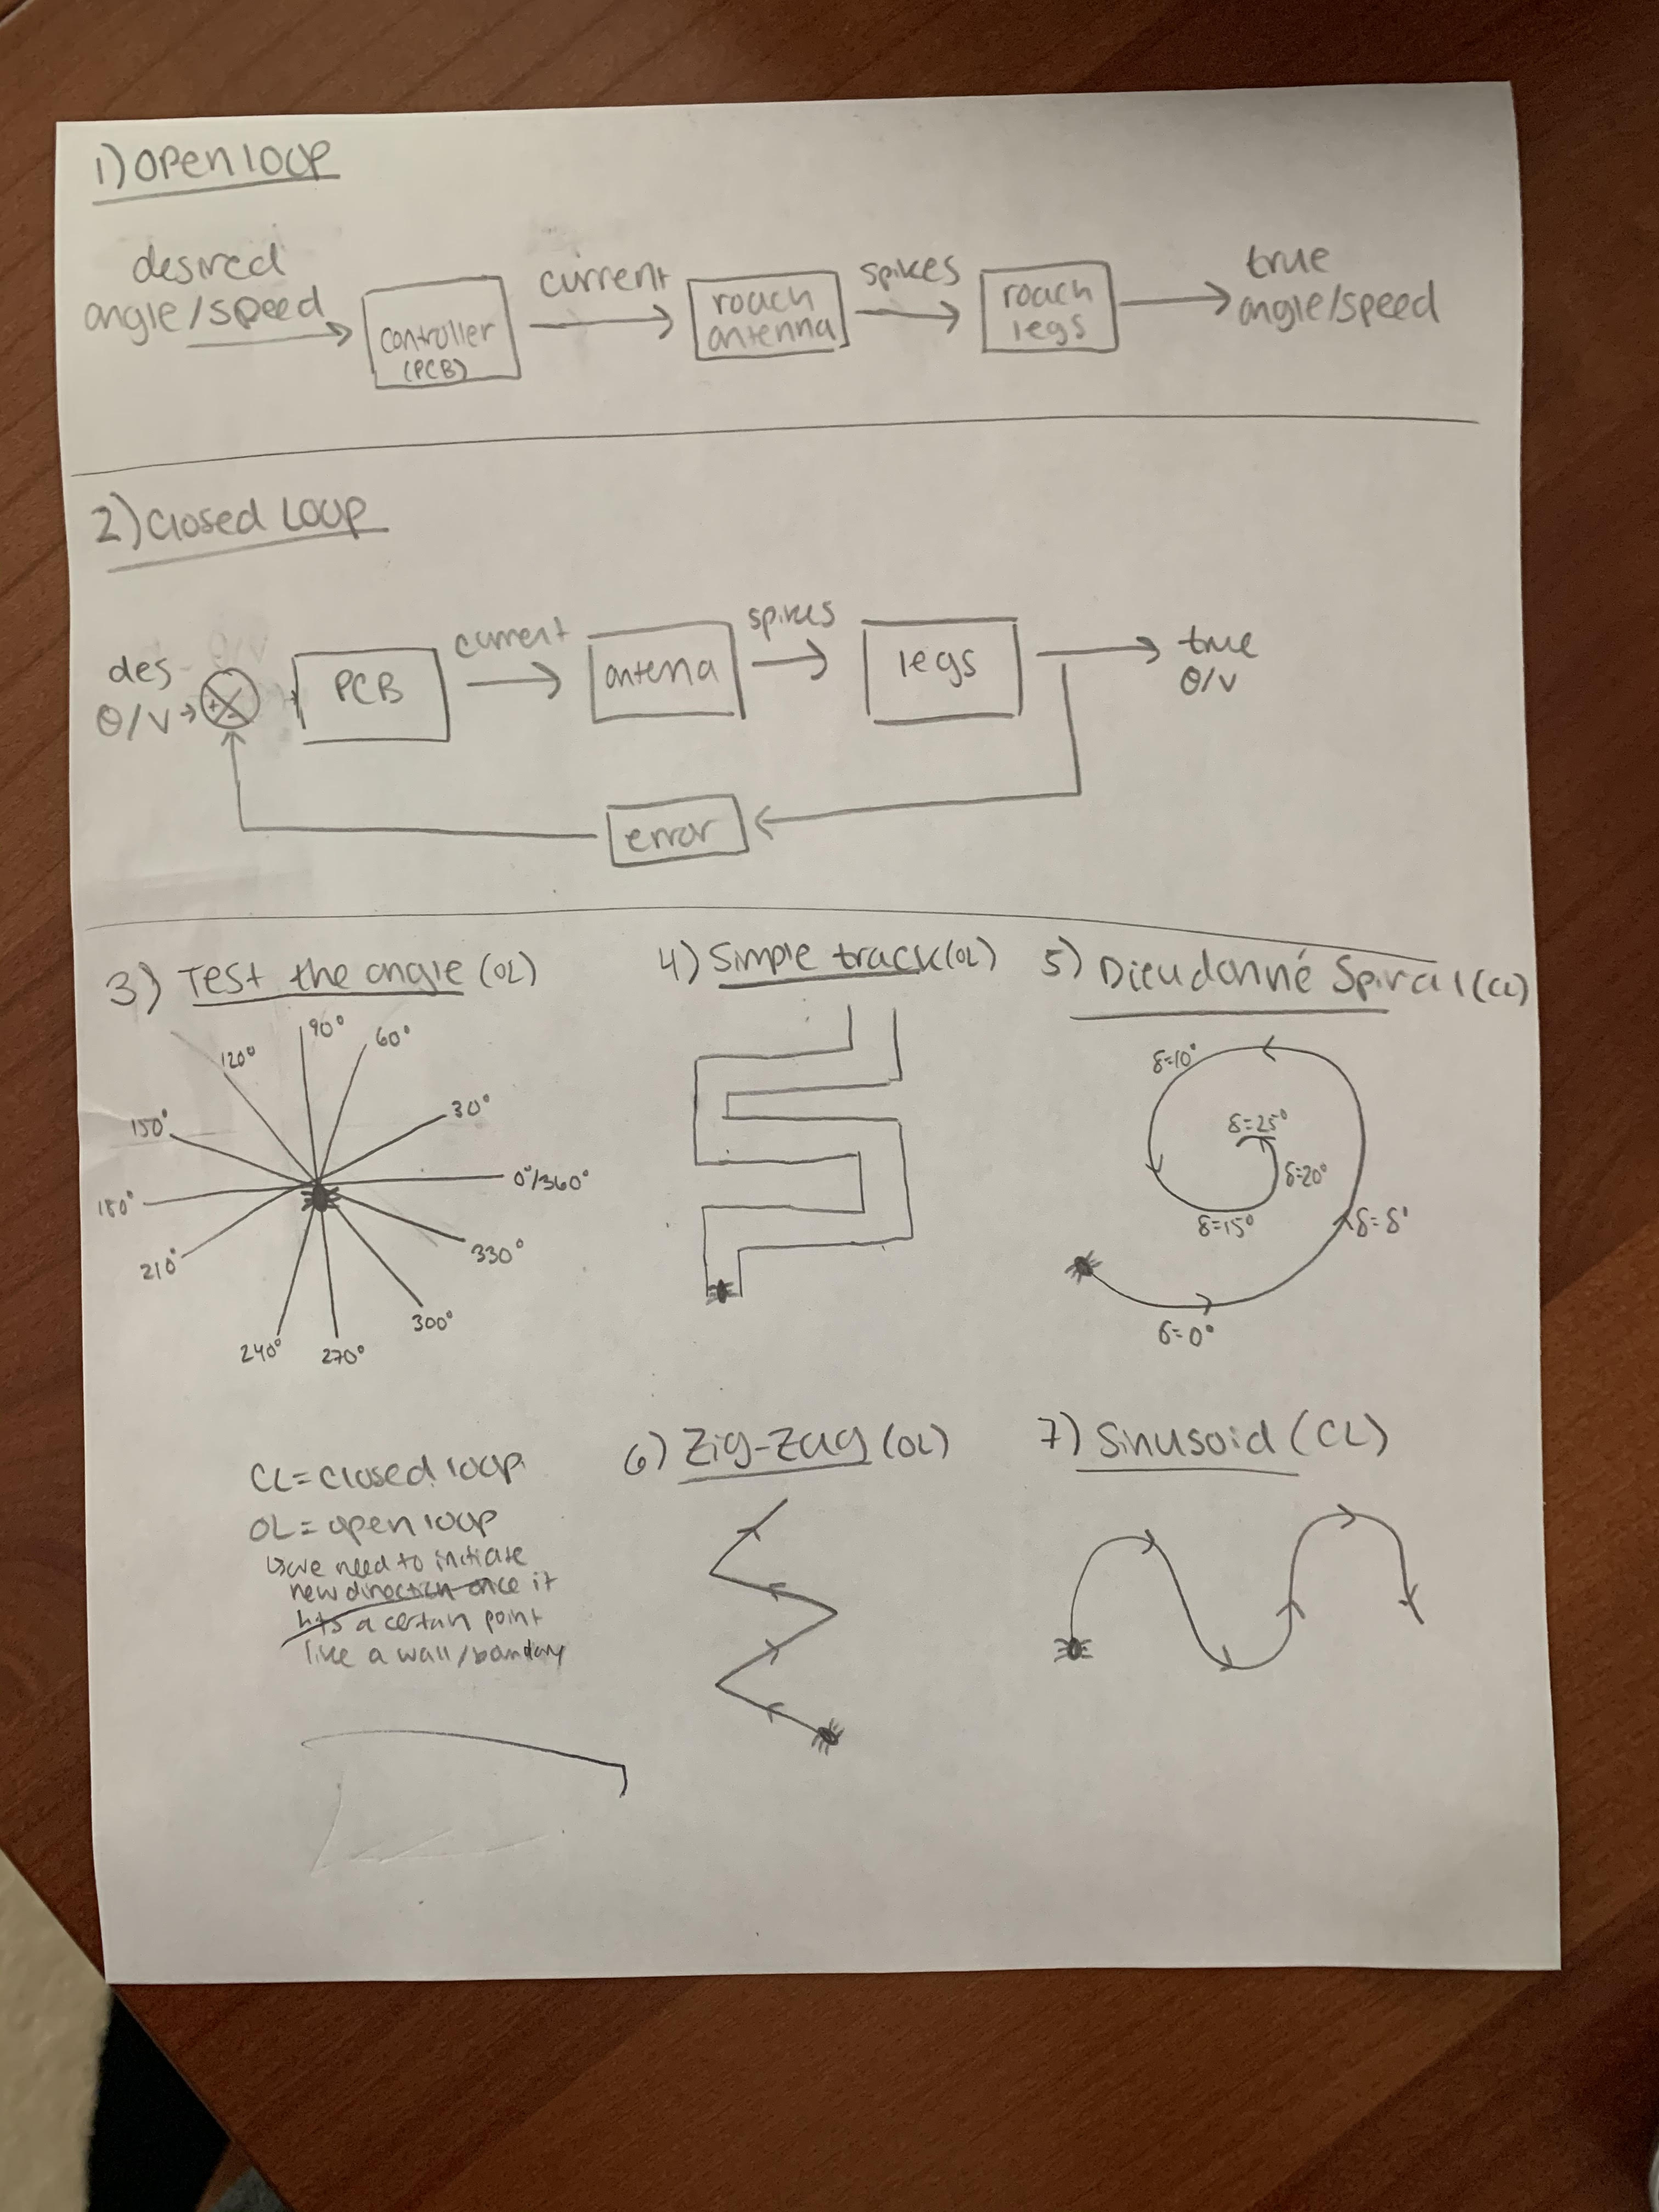 1) open loop
desired
angle/speed
controller
(PCB)
current
roach
antenna
spikes
roach
legs
true
angle/speed
2) closed Loop
des
θ/v
+
-
PCB
current
antena
spikes
legs
true
θ/v
error
3) Test the angle (OL)
90°
60°
120°
30°
150°
0°/360°
180°
330°
210°
300°
240°
270°
4) Simple track (OL)
5) Dieudonné Spiral (CL)
δ=10°
δ=25°
δ=20°
δ=15°
δ=8°
δ=0°
CL = closed loop
OL = open loop
↳ we need to initiate
new direction once it
hits a certain point
like a wall/boundary
6) Zig-Zag (OL)
7) Sinusoid (CL)